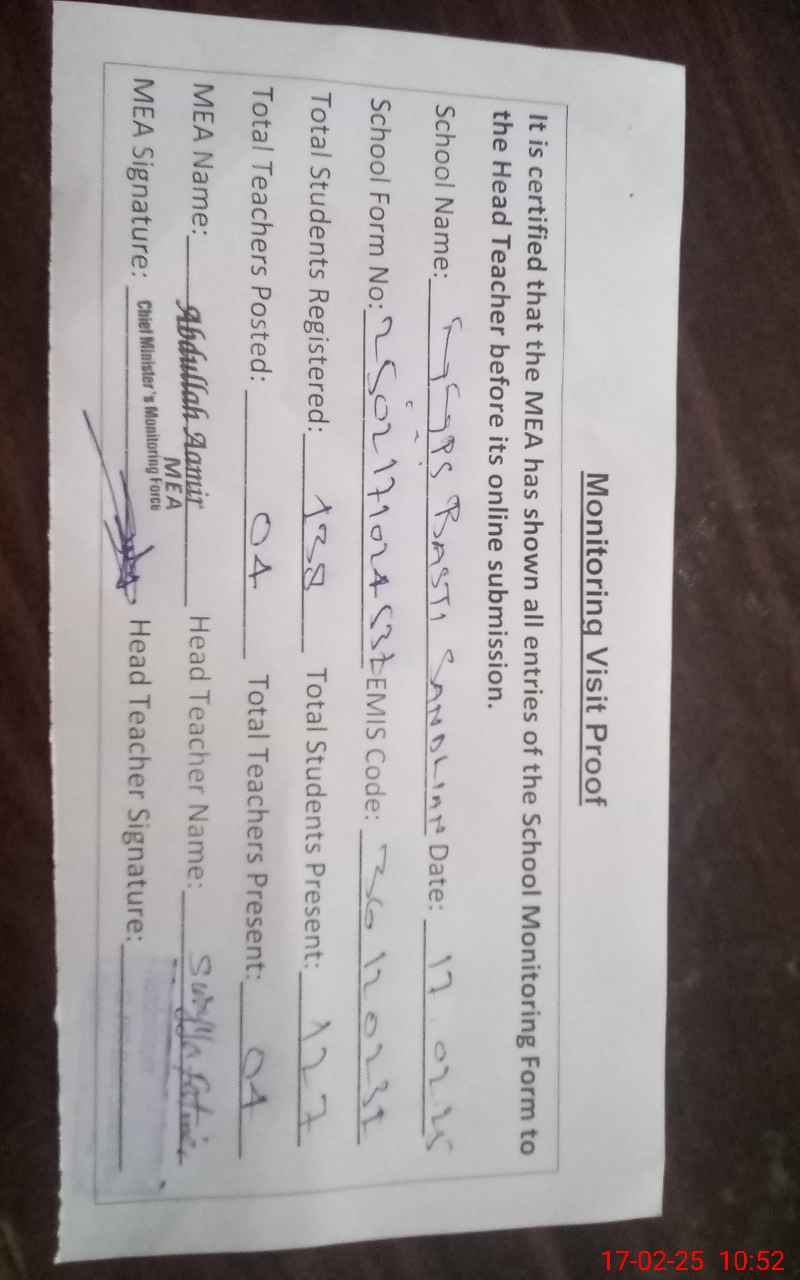 Monitoring Visit Proof
It is certified that the MEA has shown all entries of the School Monitoring Form to
the Head Teacher before its online submission.
School Name: BASTI SANDLIAN Date: 17.02.25
School Form No: EMIS Code:
Total Students Registered: 138 Total Students Present: 127
Total Teachers Posted: 04 Total Teachers Present: 04
MEA Name: Abdullah Aamir Head Teacher Name:
MEA
MEA Signature: Chief Minister's Monitoring Force Head Teacher Signature:
17-02-25 10:52